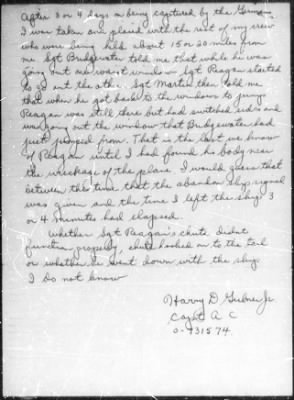 After 3 or 4 days on being captured by the Germans
I was taken and placed with the rest of my crew
who were being held about 15 or 20 miles from
me. Sgt Bridgewater told me that while he was
going out one waist window Sgt Reagan started
to go out the other. Sgt Martin then told me
that when he got back to the windows to jump
Reagan was still there but had switched sides and
was going out the window that Bridgewater had
just jumped from. That is the last we know
of Reagan until I had found his body near
the wreckage of the plane. I would guess that
between the time that the abandon ship signal
was given and the time I left the ship 3
or 4 minutes had elapsed.
Whether Sgt Reagan's chute didnt
function properly, chute hooked on to the tail
or whether he went down with the ship
I do not know
Harry D. Jr.
Capt. A C
O-431574